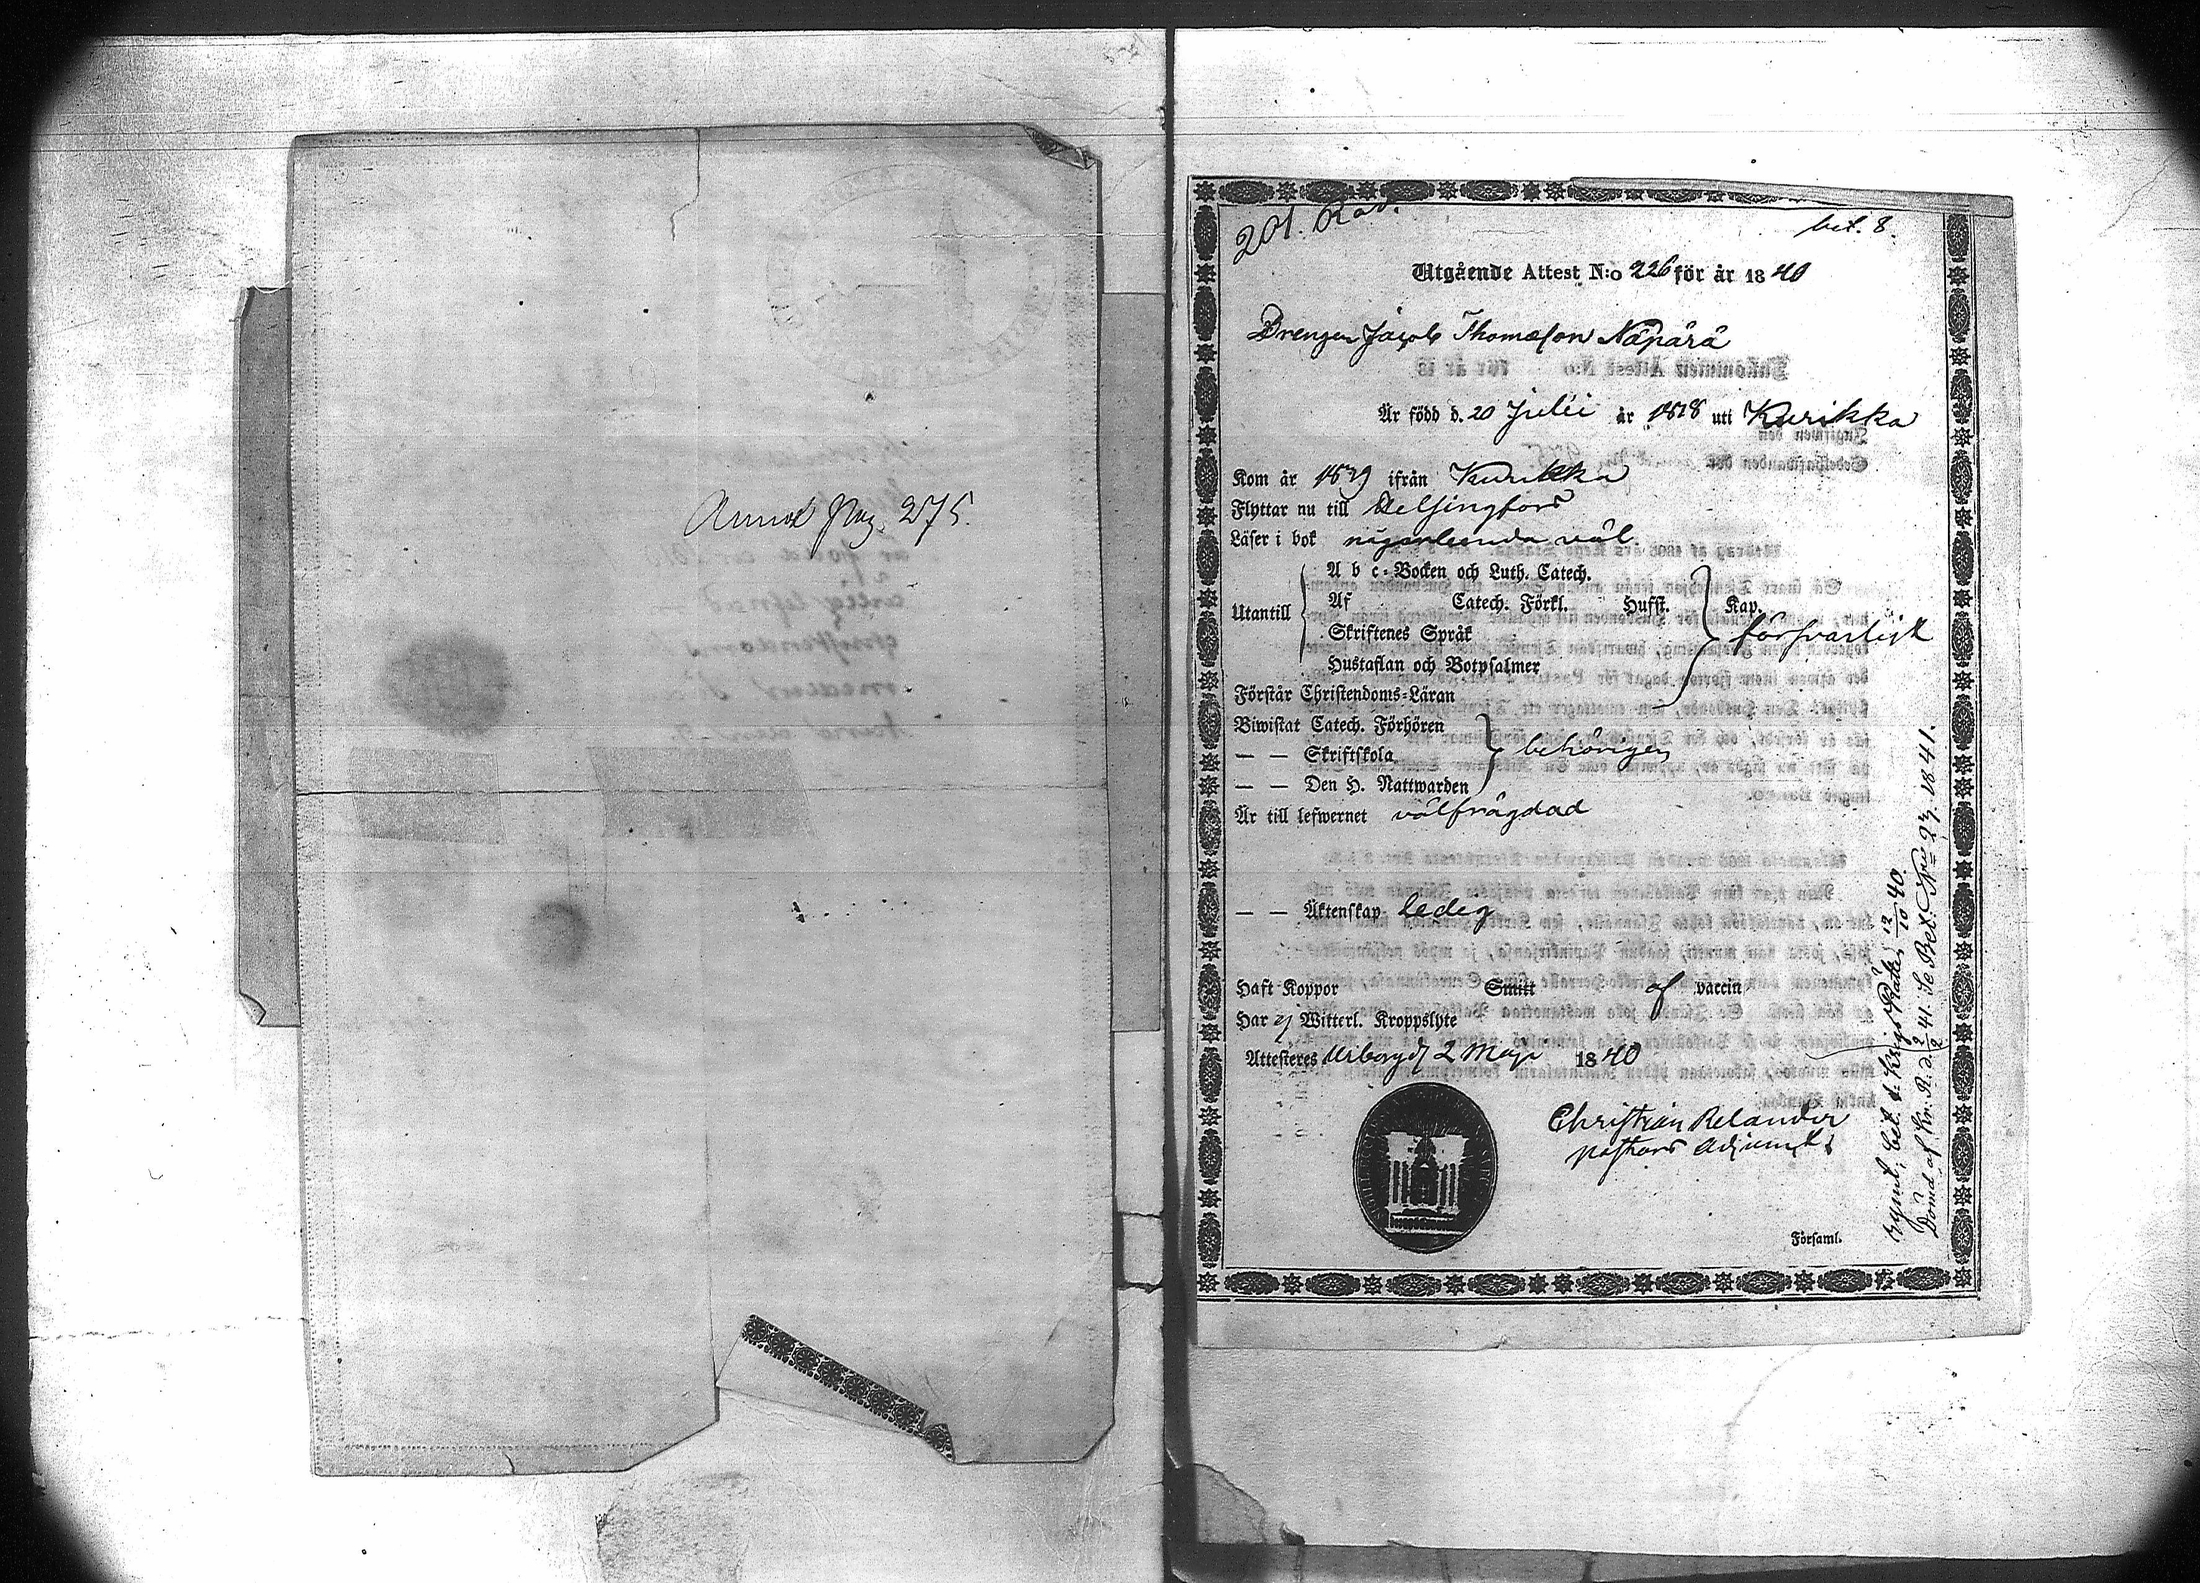 Annot pag. 275.
201. Rad.
bet. 8.
Utgående Attest N:o 226 för år 1840
Drengen Jacob Thomæson Näpärä
Är född d. 20 Julii år 1818 uti Kurikka
Kom år 1839 ifrån Kurikka
Flyttar nu till Helsingfors
Läser i bok någorlunda väl.
A b c-Bocken och Luth. Catech.
Utantill Af Catech. Förkl. Hufst. Kap.
Skriftenes Språk försvarligt
Hustaflan och Botpsalmer
Förstår Christendoms-Läran
Biwistat Catech. Förhören
— — Skriftskola behörigen
— — Den H. Nattwarden
Är till lefwernet välfrägdad
— — Äktenskap ledig
Haft Koppor Smitt af vaccin
Har ej Witterl. Kroppslyte
Attesteras Wiborg d 2 Maji 1840
Christian Relander
Pastors Adjunct.
Församl.
bet. t. Krigs Rätte, 12/10 40.
Dömd af Kr. R. d. 2/2 41. Se Bet. N:ris 27. 1841.